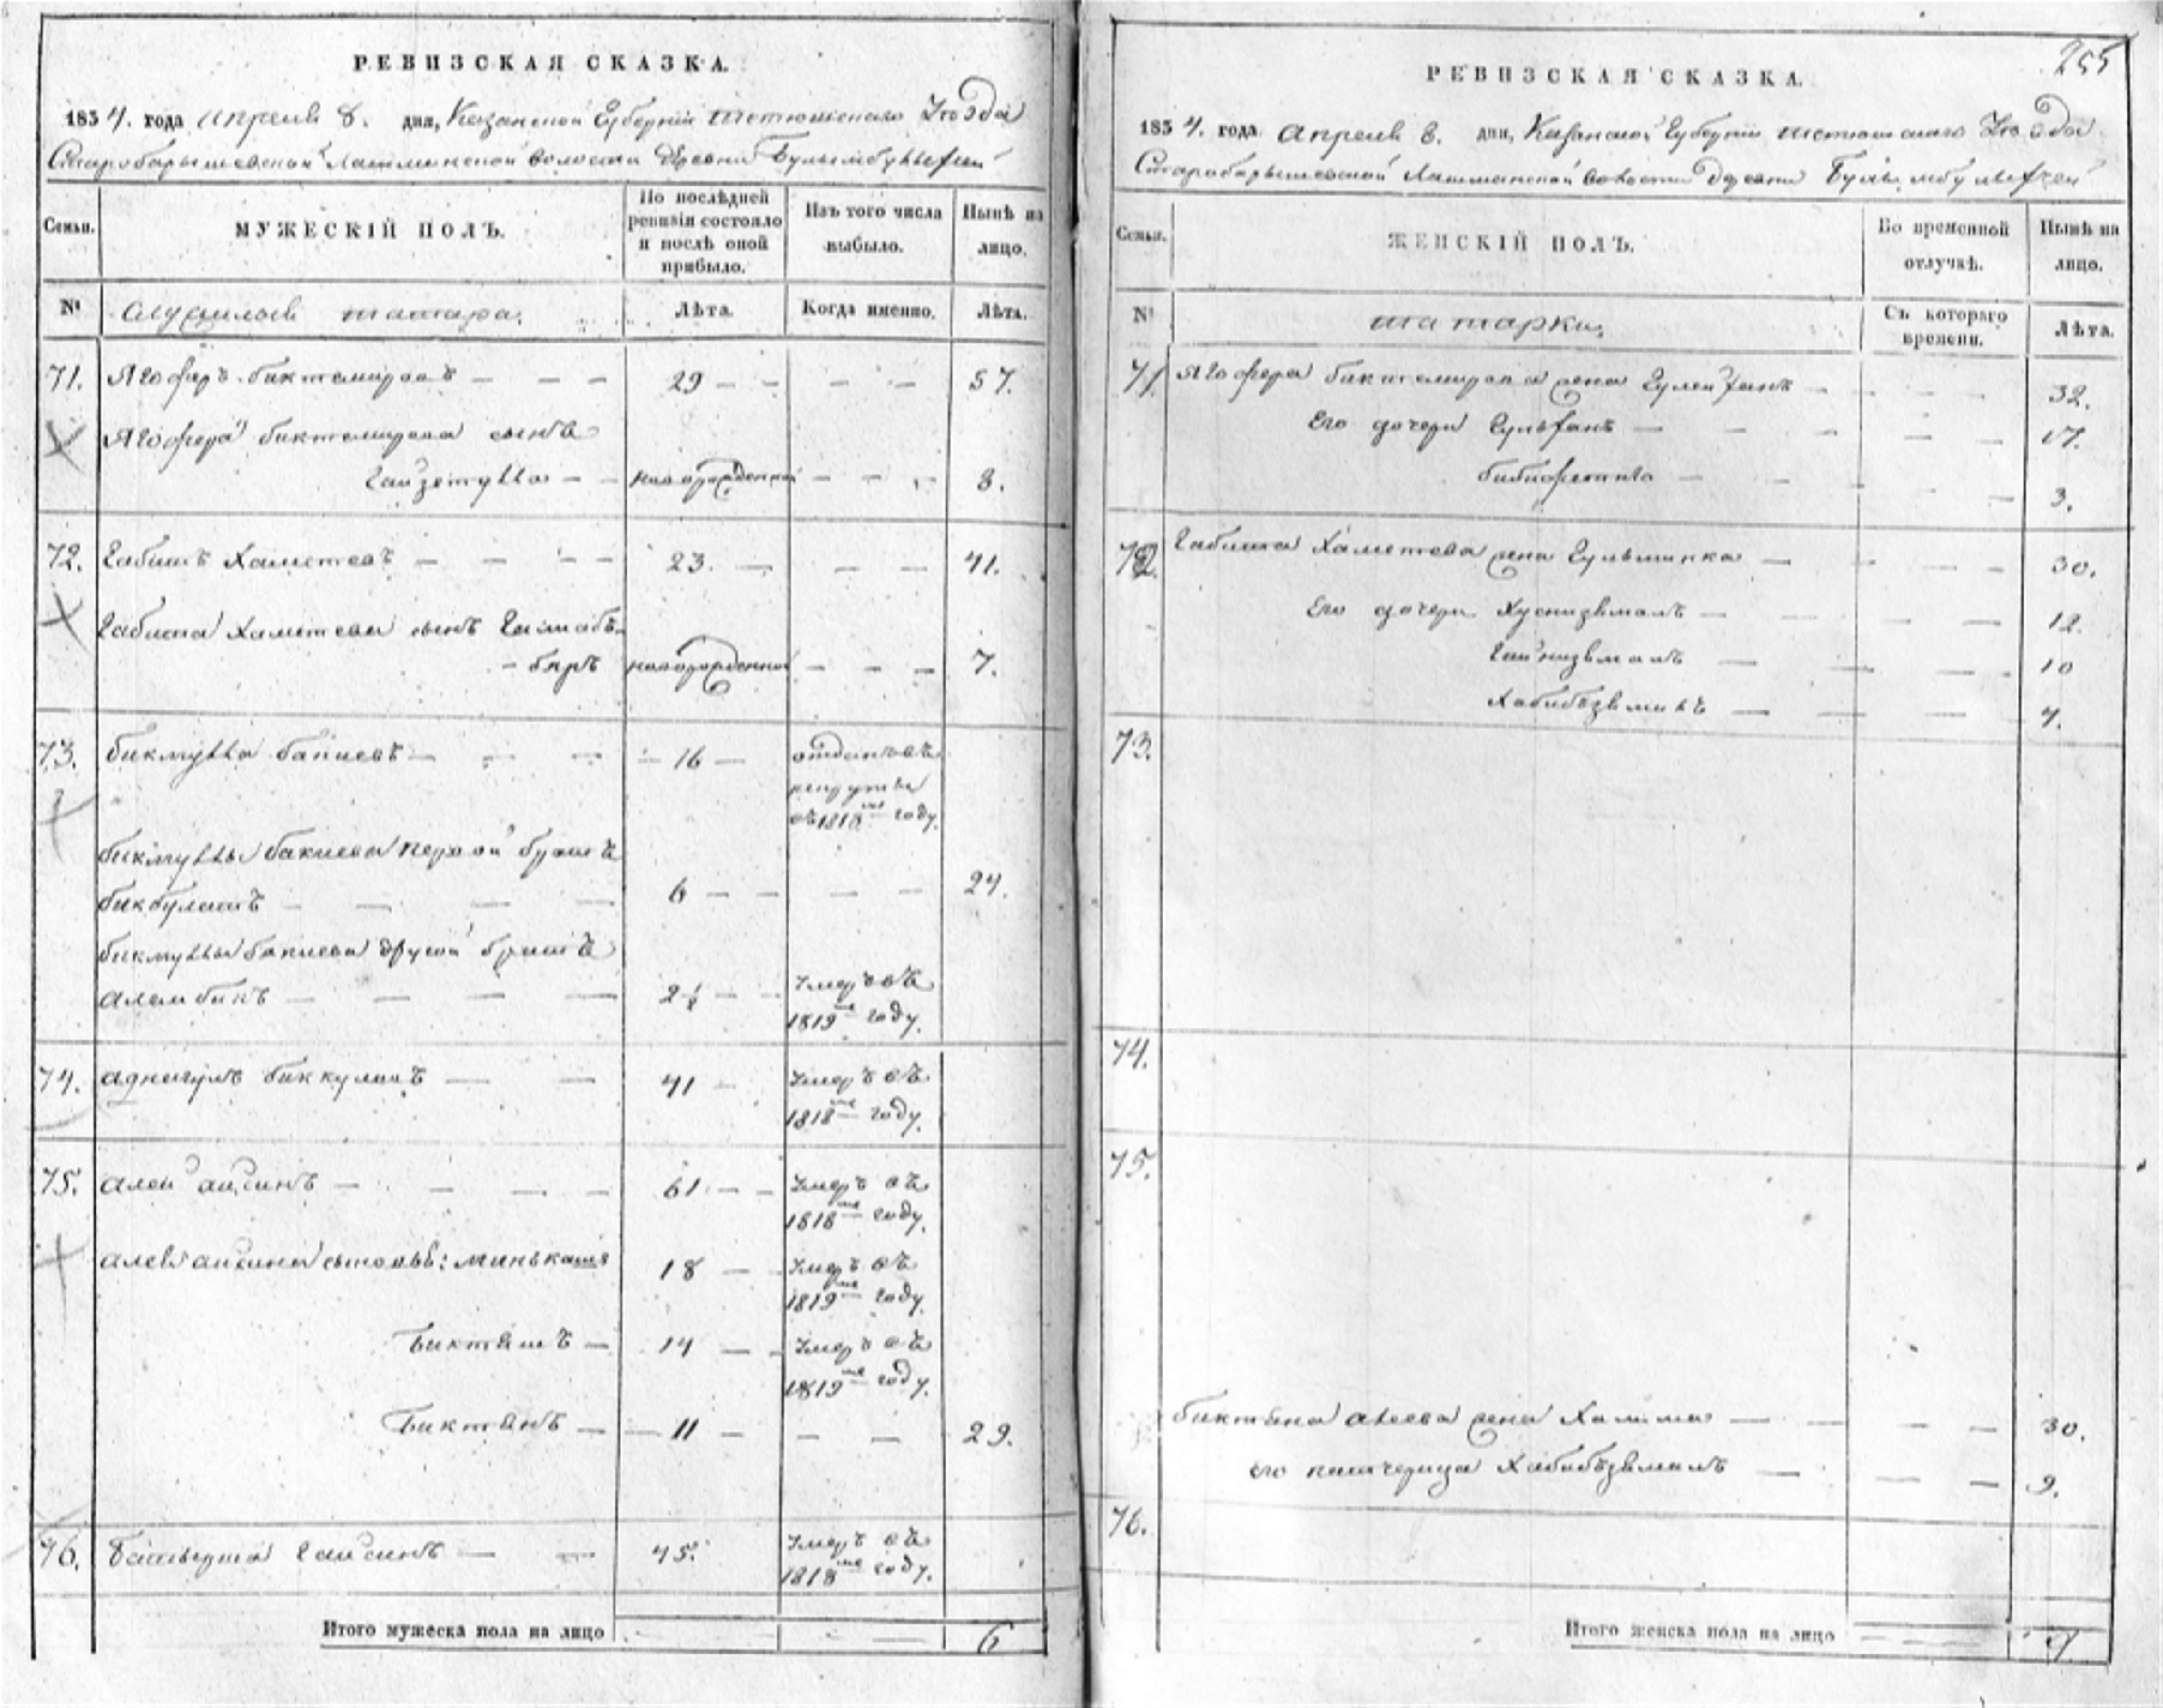 РЕВИЗСКАЯ СКАЗКА.
1834. года апреля 8. дня, Казанской Губернии Тетюшского Уезда
Старобарышевской Лашманской волости Деревни
Семьи.
МУЖЕСКІЙ ПОЛЪ.
По послѣдней ревизіи состояло и послѣ оной прибыло.
Изъ того числа выбыло.
Нынѣ на лицо.
№
служилыя татара.
Лѣта.
Когда именно.
Лѣта.
71. Ягоферъ биктемировъ — — — 29 — — — — 57.
Ягофера биктемирова сынъ
— — новорожденной — — — 8.
72. Габитъ Хаметевъ — — — — 23. — — — 41.
Габита Хаметева сынъ
новорожденной — — — 7.
73. бикмулла бакиевъ — — — — 16 — отданъ въ
рекруты
въ 1818 году.
бикмуллы бакиева первой братъ
бикбулатъ — — — — 6 — — — — 24.
бикмуллы бакиева другой братъ
алембикъ — — — — 2½ — — умеръ въ
1819 году.
74. биккуловъ — — 41 — умеръ въ
1818 году.
75. алей аисинъ — — — — 61 — — умеръ въ
1818 году.
алея аисина сыновья: минькашъ 18 — умеръ въ
1819 году.
Бикташъ — 14 — — умеръ въ
1819 году.
Биктанъ — — 11 — — — 29.
76. Гаисинъ — — 45. умеръ въ
1818 году.
Итого мужеска пола на лицо — — 6
255
РЕВИЗСКАЯ СКАЗКА.
1834. года апреля 8. дня, Казанской Губернии Тетюшского Уезда
Старобарышевской Лашманской волости Деревни
Семьи.
ЖЕНСКІЙ ПОЛЪ.
Во временной отлучкѣ.
Нынѣ на лицо.
№
татарки.
Съ котораго времени.
Лѣта.
71 Ягофера биктемирова жена — — — — 32.
Его дочери — — — — — 17.
— — — — 3.
72. Габита Хаметева жена — — — — 30.
Его дочери Хуснизямалъ — — — — 12.
Гайнизямалъ — — — — 10
Хабибзямалъ — — — — 4.
73.
74.
75.
биктана алеева жена Халима — — — — 30.
его падчерица Хабибзямалъ — — — 9.
76.
Итого женска пола на лицо — — — 9.